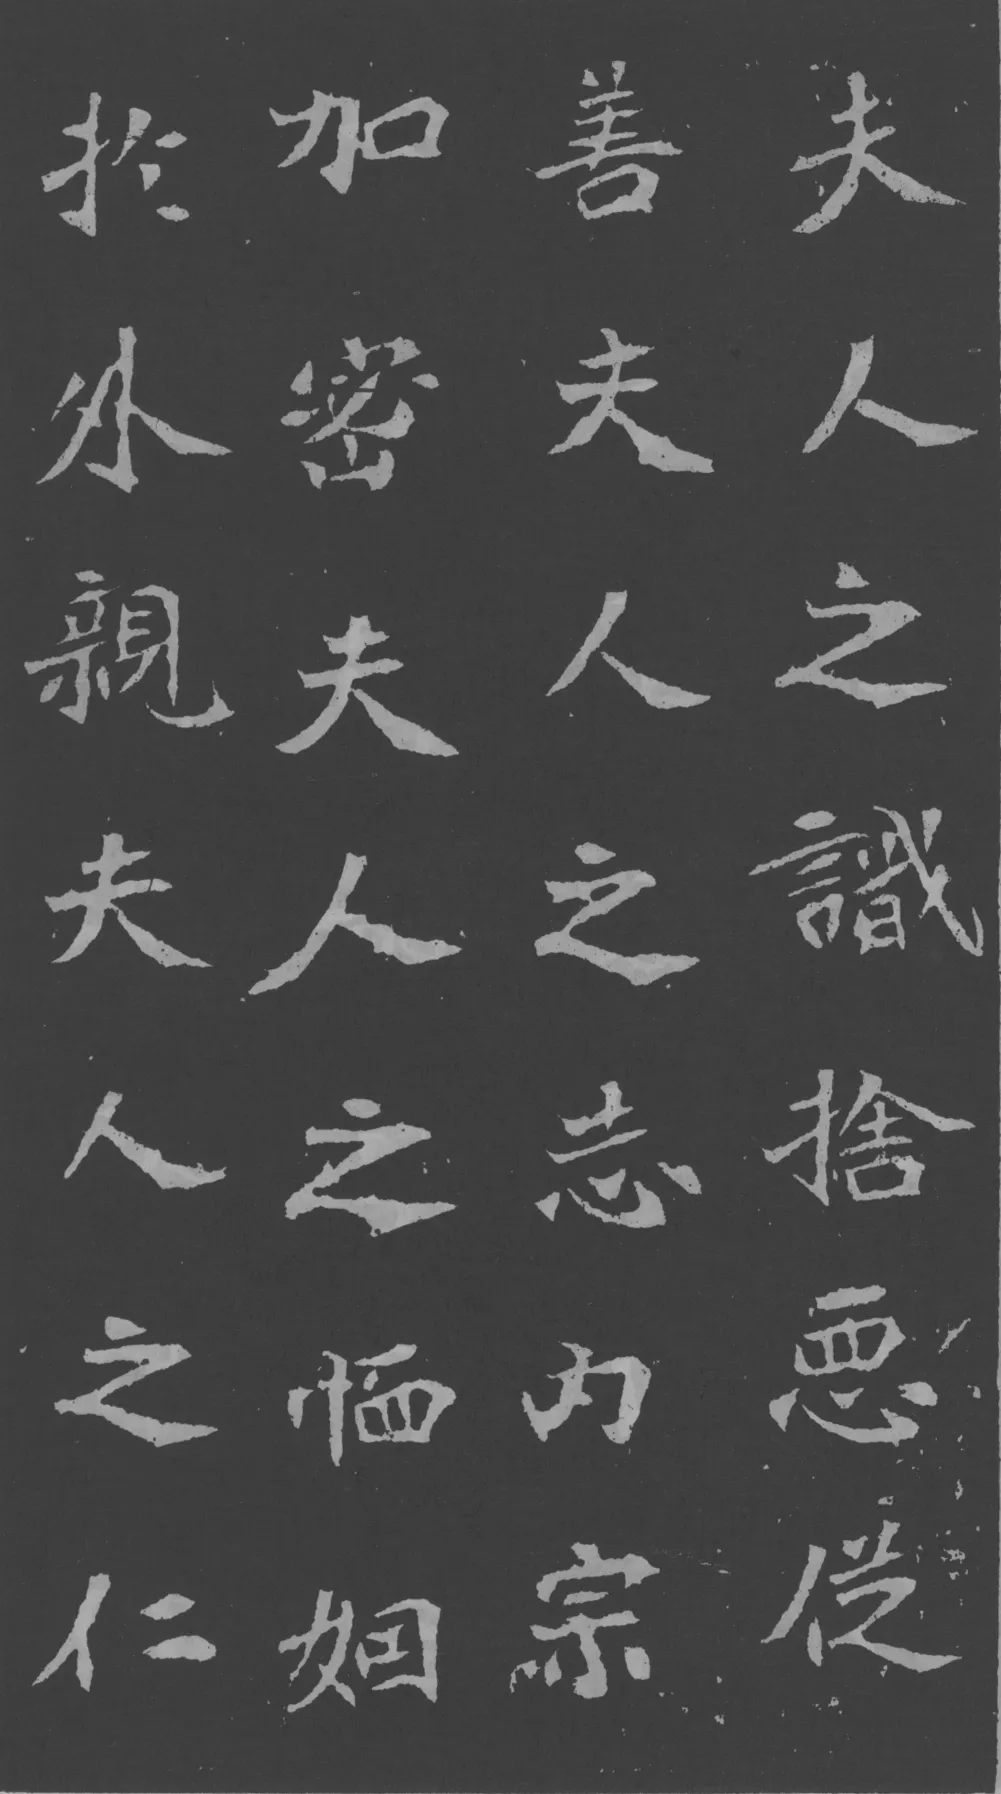 夫人之識捨惡從
善夫人之志内宗
加密夫人之恤姻
扵外親夫人之仁